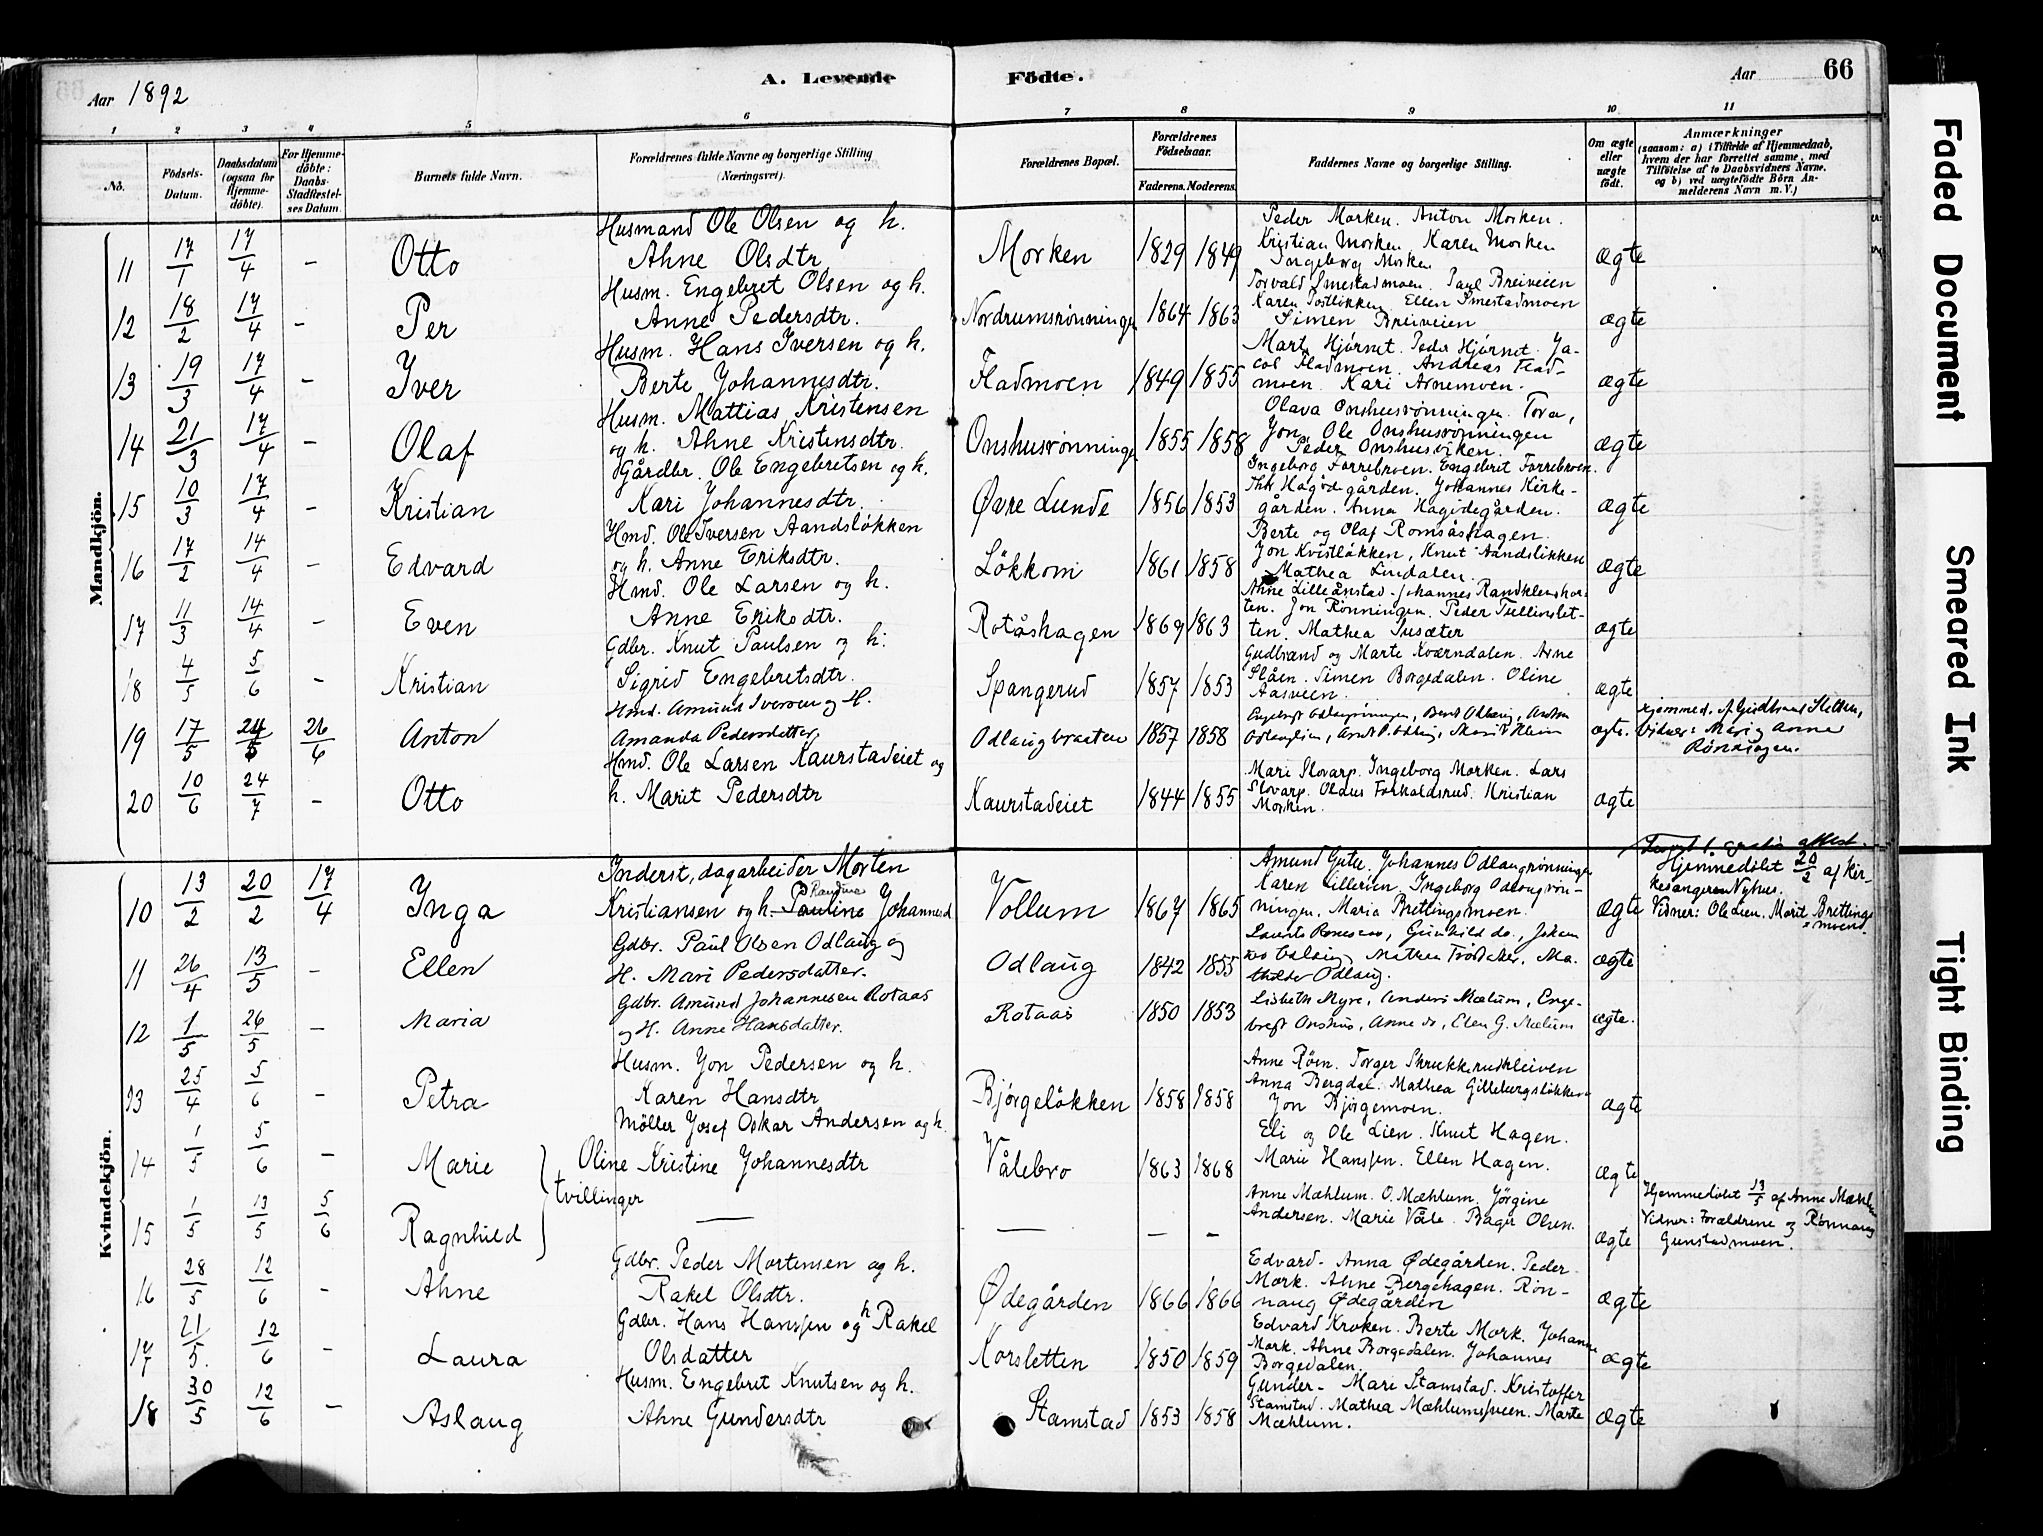 Aar 1892
A. Levende Fødte.
Aar 66
1 2 3 4 5 6 7 8 9 10 11
No.
Fødsels-Datum.
Daabsdatum (ogsaa for Hjemme-døbte).
For Hjemme-døbte: Daabs-Stadfæstel-ses Datum
Barnets fulde Navn.
Forældrenes fulde Navne og borgerlige Stilling (Næringsvei).
Forældrenes Bopæl.
Forældrenes Fødselsaar.
Faderens. Moderens.
Faddernes Navne og borgerlige Stilling.
Om ægte eller uægte født.
Anmærkninger
(saasom: a) i Tilfælde af Hjemmedaab,
hvem der har forrettet samme, med
Tilføielse af to Daabsvidners Navne,
og b) ved uægtefødte Børn An-
melderens Navn m.V.)
Mandkjøn.
11 17/1 17/4 – Otto
Husmand Ole Olsen og h.
Ahne Olsdtr
Morken 1829 1849
Peder Morken. Anton Morken.
Kristian Morken Karen Morken
Ingeborg Morken
ægte
12 18/2 17/4 – Per
Husm. Engebret Olsen og h.
Anne Pedersdtr.
Nordrumsrønningen 1864 1863
Torvald Smestadmoen. Paul Breiveien
Karen Postløkken Ellen Smestadmoen
Simen Breiveien
ægte
13 19/3 17/4 – Iver
Husm. Hans Iversen og h.
Berte Johannesdtr.
Fladmoen 1849 1855
Marte Hjørnet. Peder Hjørnet. Ja-
cob Fladmoen. Andreas Flad-
moen. Kari Arnemoen.
ægte
14 21/3 17/4 – Olaf
Husm. Mattias Kristensen
og h. Ahne Kristensdtr.
Onshusrønningen 1855 1858
Olava Onshusrønningen. Tora,
Jon, Ole Onshusrønningen
Peder Onshusviken.
ægte
15 10/3 17/4 – Kristian
Gårdbr. Ole Engebretsen og h.
Kari Johannesdtr.
Øvre Lunde 1856 1853
Ingeborg Forrebroen. Engebret Forrebroen.
gården. Johannes Kirke-
gården. Anna Hagidegården.
ægte
16 17/2 14/4 – Edvard
Hmd. Ole Iversen Aandsløkken
og h. Anne Eriksdtr.
Løkkom 1861 1858
Berte og Olaf Romsåshagen.
Jon Kvistløkken, Knut Aandsløkken
Mathea Lindalen.
ægte
17 11/3 14/4 – Even
Hmd. Ole Larsen og h.
Anne Eriksdtr.
Rotåshagen 1869 1863
Anne Lilleånstad. Johannes Randklevshor-
ten. Jon Rønningen. Peder Tullivslet-
ten. Mathea Susæter
ægte
18 4/5 5/6 – Kristian
Gdbr. Knut Paulsen og h:
Sigrid Engebretsdtr.
Spangerud 1857 1853
Gudbrand og Marte Kværndalen. Arne
Slåen. Simen Borgedalen. Oline
Aasveen.
ægte
19 17/5 24/5 26/6 Anton
Hmd. Amund Iversen og H.
Amanda Pedersdatter,
Odlaugbraaten 1857 1858
ægte.
Hjemmed. af Gudbrand Sletten,
vidner: Mari og Anne
Rønningen.
20 10/6 24/7 – Otto
Hmd. Ole Larsen Kaurstadeiet og
h. Marit Pedersdtr
Kaurstadeiet 1844 1855
Mari Slovarp. Ingeborg Morken. Lars
Slovarp. Olaus Forkalsrud. Kristian
Morken.
ægte
Kvindekjøn.
10 13/2 20/2 17/4 Inga
Inderst, dagarbeider Morten
Kristiansen og h. Pauline Randine Johannesd
Vollum 1867 1865
Amund Gutu. Johannes Odlaugrønningen
Karen Lillerien. Ingeborg Odlaugrøn-
ningen. Maria Brettingsmoen.
ægte
Hjemmedøbt 20/2 af Kir-
kesangeren Nyhus.
Vidner: Ole Lien. Marit Brettings
moend.
11 26/4 13/5 – Ellen
Gdbr. Paul Olsen Odlaug og
H. Mari Pedersdatter.
Odlaug 1842 1855
ægte
12 1/5 26/5 – Maria
Gdbr. Amund Johannesen Rotaas
og H. Anne Hansdatter.
Rotaas 1850 1853
Lisbeth Myre, Anders Mælum, Enge-
bregt Onshus, Anne do, Elen G. Mælum
ægte.
13 25/4 5/6 – Petra
Husm. Jon Pedersen og h.
Karen Hansdtr
Bjørgeløkken 1858 1858
Anne Røen. Torger Skrukkerudkleiven
Anna Bergdal. Mathea Gillebergsløkken
Jon Bjørgemoen.
ægte
14 1/5 5/6 – Marie
Møller Josef Oskar Andersen og h.
Oline Kristine Johannesdtr
tvillinger
Vålebro 1863 1868
Eli og Ole Lien. Knut Hagen.
Marie Hanssen. Ellen Hagen.
ægte
15 1/5 13/5 5/6 Ragnhild
— — – –
Anne Mæhlum. O. Mæhlum. Jørgine
Andersen. Marie Våle. Bager Olsen.
ægte
Hjemmedøbt 13/5 af Anne Mæhlum
Vidner: Forældrene og Rønnaug
Gunstadmoen.
16 28/5 12/6 – Ahne
Gdbr. Peder Mortensen og h.
Rakel Olsdtr.
Ødegården 1866 1866
Edvard- Anna Ødegården. Peder
Mork. Ahne Bergehagen. Røn-
naug Ødegården
ægte
17 21/5. 12/6 – Laura
Gdbr. Hans Hanssen og h Rakel
Olsdatter
Korsletten 1850 1859
Edvard Kroken. Berte Mork. Johanne
Mork. Ahne Borgedalen. Johannes
Borgedalen.
ægte
18 30/5 12/6 – Aslaug
Husm. Engebret Knutsen og h.
Ahne Gundersdtr
Stamstad 1853 1858
Gunder- Mari Stamstad. Kristoffer
Stamstad. Mathea Mæhlumsveen. Marte
Mæhlum.
ægte
Faded Document
Smeared Ink
Tight Binding